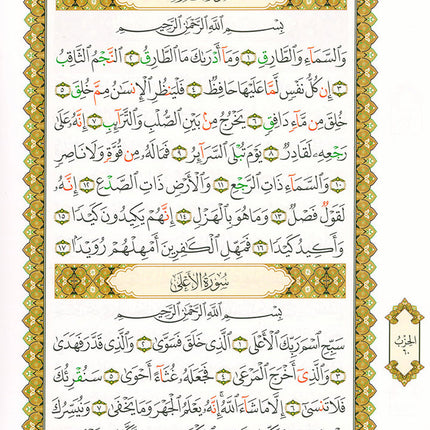 بِسْمِ ٱللَّهِ ٱلرَّحْمَٰنِ ٱلرَّحِيمِ
وَٱلسَّمَآءِ وَٱلطَّارِقِ ١ وَمَآ أَدْرَىٰكَ مَا ٱلطَّارِقُ ٢ ٱلنَّجْمُ ٱلثَّاقِبُ
٣ إِن كُلُّ نَفْسٍ لَّمَّا عَلَيْهَا حَافِظٌ ٤ فَلْيَنظُرِ ٱلْإِنسَٰنُ مِمَّ خُلِقَ ٥
خُلِقَ مِن مَّآءٍ دَافِقٍ ٦ يَخْرُجُ مِنۢ بَيْنِ ٱلصُّلْبِ وَٱلتَّرَآئِبِ ٧ إِنَّهُۥ عَلَىٰ
رَجْعِهِۦ لَقَادِرٌ ٨ يَوْمَ تُبْلَى ٱلسَّرَآئِرُ ٩ فَمَا لَهُۥ مِن قُوَّةٍ وَلَا نَاصِرٍ
١٠ وَٱلسَّمَآءِ ذَاتِ ٱلرَّجْعِ ١١ وَٱلْأَرْضِ ذَاتِ ٱلصَّدْعِ ١٢ إِنَّهُۥ
لَقَوْلٌ فَصْلٌ ١٣ وَمَا هُوَ بِٱلْهَزْلِ ١٤ إِنَّهُمْ يَكِيدُونَ كَيْدًا ١٥
وَأَكِيدُ كَيْدًا ١٦ فَمَهِّلِ ٱلْكَٰفِرِينَ أَمْهِلْهُمْ رُوَيْدًۢا ١٧
سُورَةُ ٱلْأَعْلَىٰ
بِسْمِ ٱللَّهِ ٱلرَّحْمَٰنِ ٱلرَّحِيمِ
سَبِّحِ ٱسْمَ رَبِّكَ ٱلْأَعْلَى ١ ٱلَّذِى خَلَقَ فَسَوَّىٰ ٢ وَٱلَّذِى قَدَّرَ فَهَدَىٰ
٣ وَٱلَّذِىٓ أَخْرَجَ ٱلْمَرْعَىٰ ٤ فَجَعَلَهُۥ غُثَآءً أَحْوَىٰ ٥ سَنُقْرِئُكَ
فَلَا تَنسَىٰٓ ٦ إِلَّا مَا شَآءَ ٱللَّهُ إِنَّهُۥ يَعْلَمُ ٱلْجَهْرَ وَمَا يَخْفَىٰ ٧ وَنُيَسِّرُكَ
الحِزْبُ
٦٠